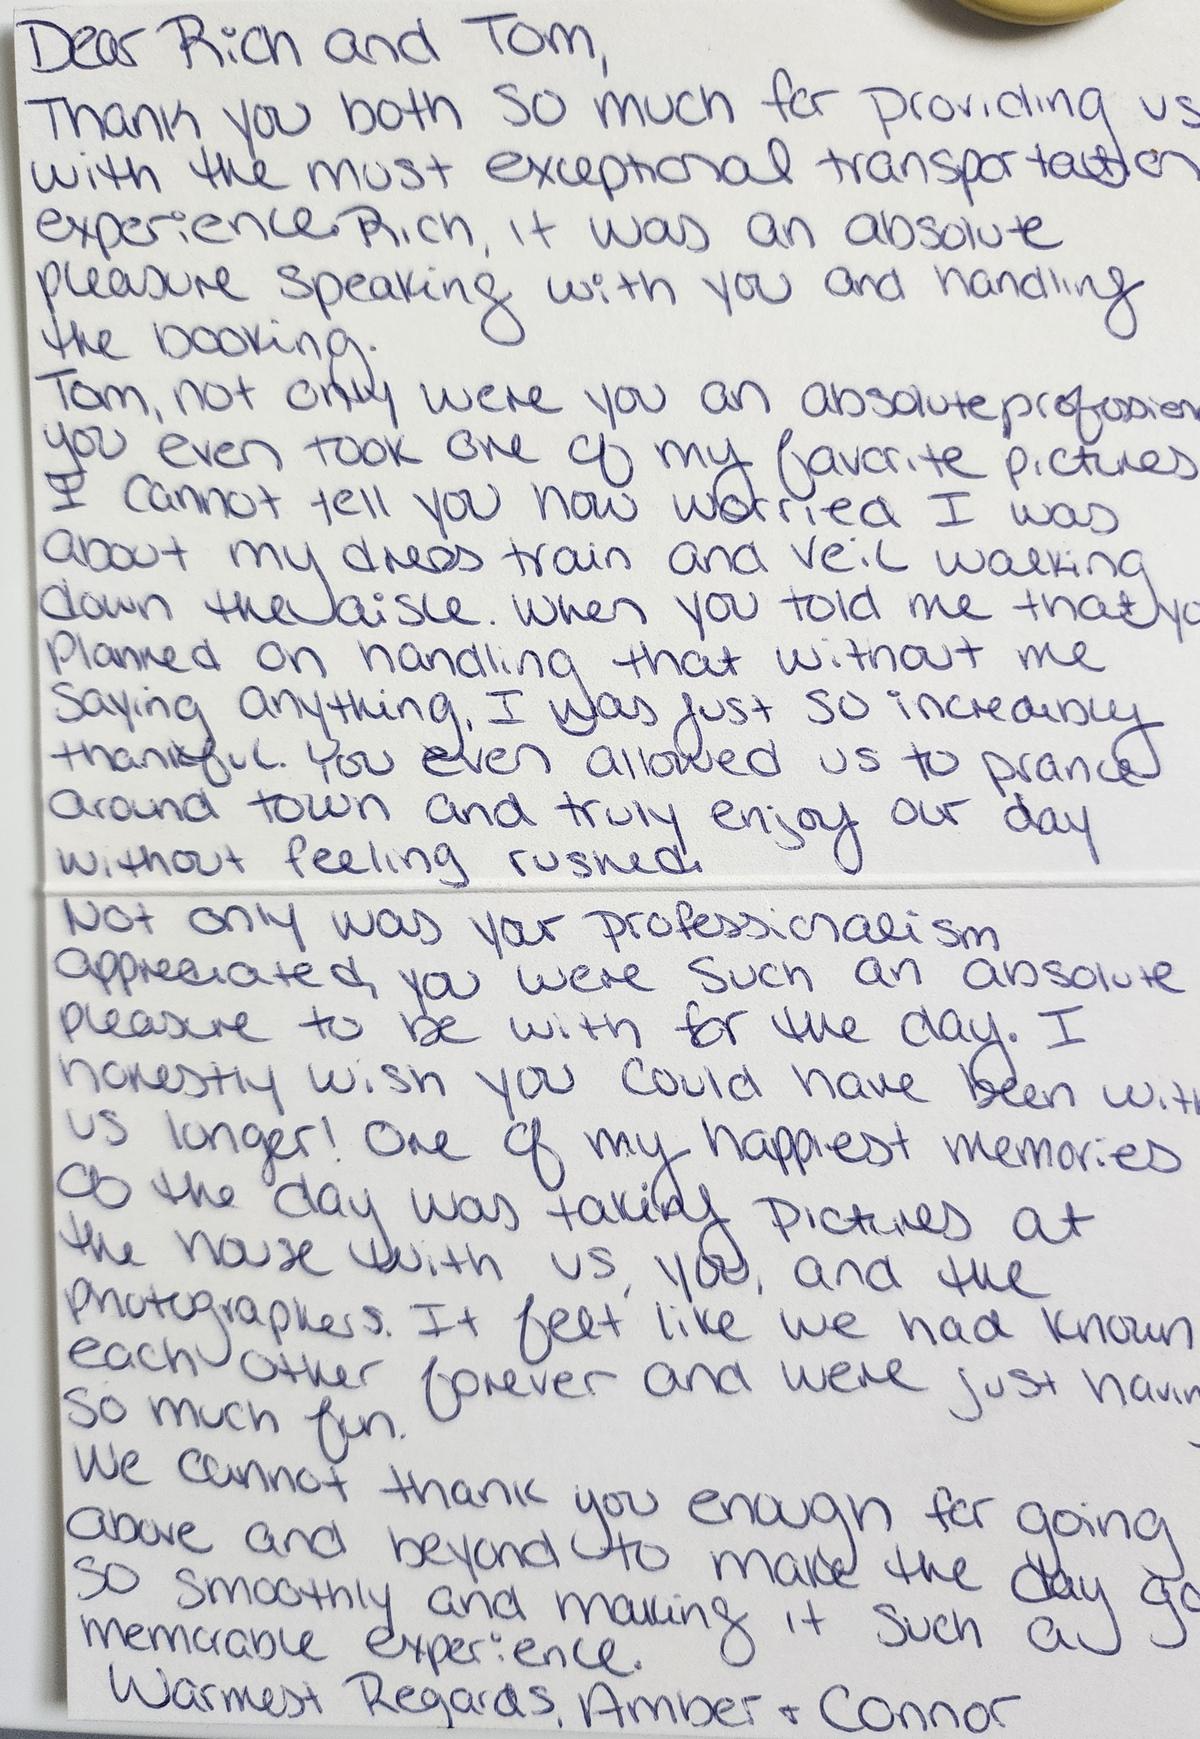 Dear Rich and Tom,
Thank you both so much for providing us
with the most exceptional transportation
experience. Rich, it was an absolute
pleasure speaking with you and handling
the booking.
Tom, not only were you an absolute profession
you even took one of my favorite pictures
I cannot tell you how worried I was
about my dress train and veil walking
down the aisle. When you told me that yo
planned on handling that without me
saying anything, I was just so incredibly
thankful. You even allowed us to prance
around town and truly enjoy our day
without feeling rushed.
Not only was your professionalism
appreciated, you were such an absolute
pleasure to be with for the day. I
honestly wish you could have been with
us longer! One of my happiest memories
of the day was taking pictures at
the house with us, you, and the
photographers. It felt like we had known
each other forever and were just havin
so much fun.
We cannot thank you enough for going
above and beyond to make the day go
so smoothly and making it such a
memorable experience.
Warmest Regards, Amber + Connor